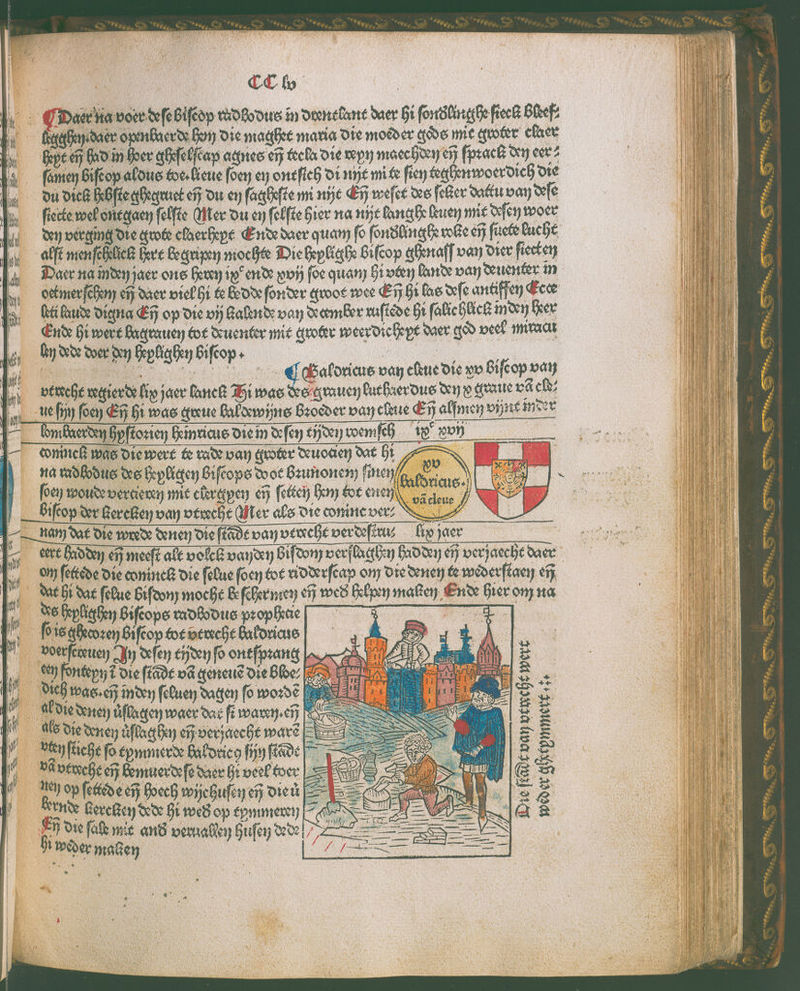 CC lv
Daer na voer dese biscop radbodus in drentlant daer hi sonderlinghe sieck bleef
legghen. daer openbaerde hem die maghet maria die moeder gods mit groter claer
heyt eñ had in heer gheselscap agnes eñ tecla die reyn maechden eñ sprack den eer
samen biscop aldus toe. lieue soen en ontsich di nyt mi te sien teghenwoerdich die
du dick hebste ghegruet eñ du en sagheste mi nyt Eñ weset des seker dattu van dese
siecte wel ontgaen selste Mer du en selste hier na nyt langh leuen mit desen woer
den verging die grote claerheyt Ende daer quam so sonderlinghe roke eñ suete lucht
alst menschelick hert begripen mochte Die heylighe biscop ghenass van dier siecten
Daer na inden jaer ons heren ixᶜ ende xvij soe quam hi vten lande van deuenter in
oetmerschem eñ daer viel hi te bedde sonder groot wee Eñ hi las dese antiffen Ecce
leti laude digna Eñ op die vij kalende van december rustede hi salichlick inden heer
Ende hi wert bagrauen tot deuenter mit groter weerdicheyt daer god veel miracu
len dede doer den heylighen biscop.
Baldricus van cleue die xv biscop van
vtrecht regierde lix jaer lanck Hi was des grauen luthaerdus den v graue vā cle
ue sijn soen Eñ hi was greue baldewijns broeder van cleue Eñ alsmen vijnt inder
lombaerden hystorien heinricus die in desen tijden roemsch
ixᶜ xvij
coninck was die wert te rade van groter deuocien dat hi
na radbodus des heyligen biscops doot brunonem sinen
soen woude vercieren mit clergyen eñ setten hem tot enen
biscop der kercken van vtrecht Mer als die coninc ver
xv
baldricus.
vā cleue
nam dat die wrede denen die stadt van vtrecht verdestru
lix jaer
eert hadden eñ meest alt volck vanden bisdom verslaghen hadden eñ verjaecht daer
om settede die coninck die selue soen tot ridderscap om die denen te wederstaen eñ
dat hi dat selue bisdom mocht bescermen eñ weder helpen maken Ende hier om na
des heylighen biscops radbodus prophecie
so is ghecoren biscop tot vtrecht baldricus
voerscreuen In desen tijden so ontsprang
een fonteyn ī die stadt vā geneuē die bloe
dich was. eñ inden seluen dagen so wordē
al die denen v̄slagen waer dat si waren. eñ
als die denen v̄slaghen eñ verjaecht warē
vten sticht so tymmerde baldricꝰ sijn stadt
vā vtrecht eñ bemuerdese daer hi veel toer
nen op settede eñ hoech wijchusen eñ die v̄
bernde kercken dede hi weder op tymmeren
Eñ die sale mit ander veruallen husen dede
hi weder maken
Die stadt van vtrecht wert
weder ghetymmert